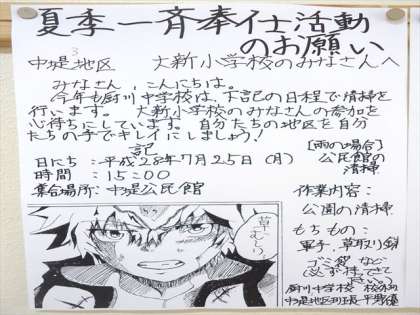 夏季一斉奉仕活動
のお願い
中堤地区 大新小学校のみなさんへ
みなさん、こんにちは。
今年も厨川中学校は、下記の日程で清掃を
行います。大新小学校のみなさんの参加を
心待ちにしています。自分たちの地区を自分
たちの手でキレイにしましょう！
記
日にち：平成28年7月25日(月)
時間：15:00
集合場所：中堤公民館
[雨の場合]
公民館の
清掃
作業内容：
公園の清掃
もちもの：
軍手、草取り鎌
ゴミ袋 など
厨川中学校
中堤地区班長
草むしり